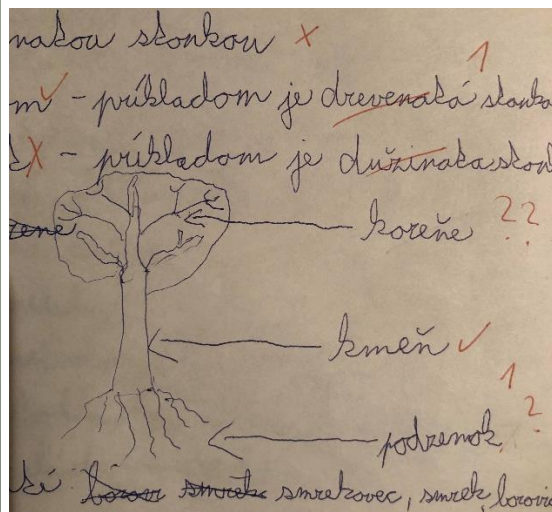 natou stonkou x
m ✓ - príkladom je drevenatá stonka 1
k x - príkladom je dužinata ston
rene
koreňe ??
kmeň ✓
1
podzemok ?
ké borovi smrek smrekovec, smrek, borovic